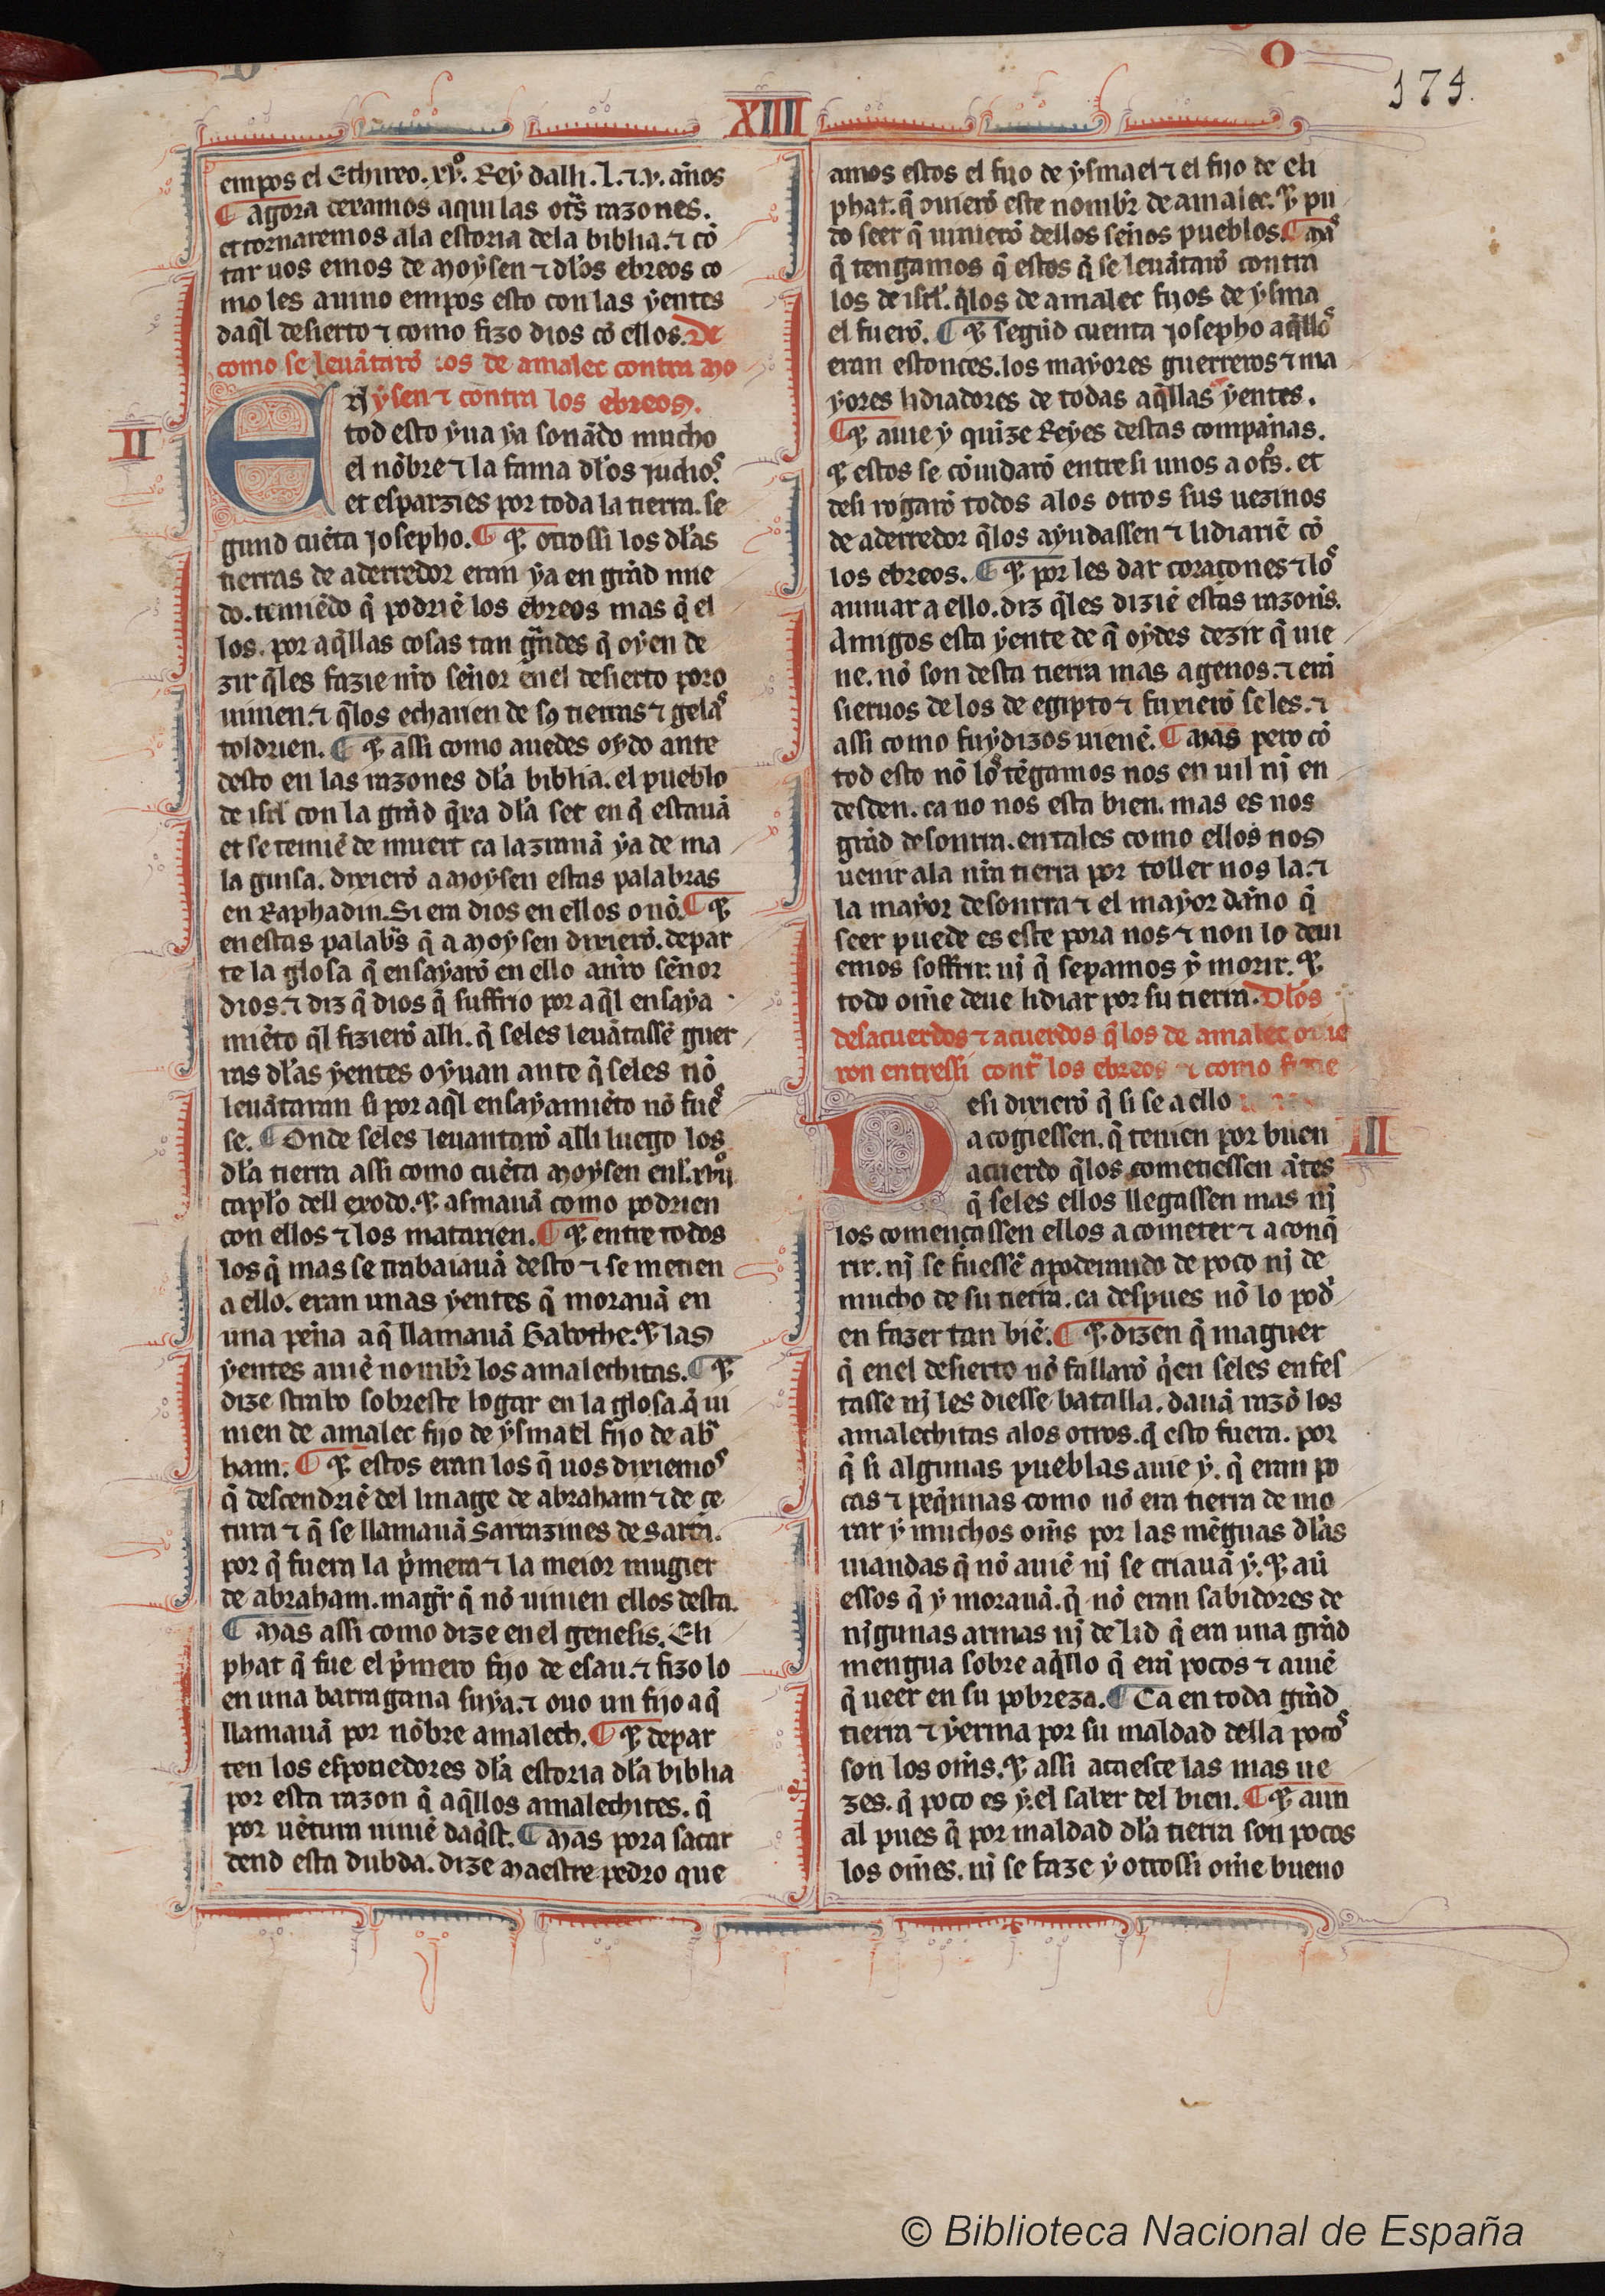 O
174.
XIIII
empos el Ethireo. xvº. Rey dalli. l. ⁊ .v. años
¶ agora dexamos aqui las otrˢ razones.
et tornaremos ala estoria dela biblia. ⁊ cō
tar uos emos de moysen ⁊ dłos ebreos co
mo les auino empos esto con las yentes
daq̄l desierto ⁊ como fizo dios cō ellos. De
como se leuātarō los de amalec contra mo
ysen ⁊ contra los ebreos.
II
EN
tod esto yua ya sonādo mucho
el nōbre ⁊ la fama dłos judioˢ.
et esparzies por toda la tierra. se
gund cuēta Josepho. ¶ ⁊ otrossi los dłas
tierras de aderredor eran ya en grād mie
do. temiēdo q̄ podriē los ebreos mas q̄ el
los. por aq̄llas cosas tan grādes q̄ oyen de
zir q̄les fazie nr̄o señor en el desierto poro
uinien. ⁊ q̄los echauen de sꝯ tierras ⁊ gelaˢ
toldrien. ¶ ⁊ assi como auedes oydo ante
desto en las razones dła biblia. el pueblo
de isrł con la grād q̄xa dła set en q̄ estauā
et se temiē de muert ca lazrauā ya de ma
la guisa. dixierō a moysen estas palabras
en Raphadin. Si era dios en ellos o nō. ¶ ⁊
en estas palabrˢ q̄ a moysen dixierō. depar
te la glosa q̄ ensayarō en ello a nr̄o señor
dios. ⁊ diz q̄ dios q̄ suffrio por aq̄l ensaya
miēto q̄l fizierō alli. q̄ seles leuātassē guer
ras dłas yentes o yuan ante q̄ seles nō
leuātaran si por aq̄l ensayamiēto nō fueˢ
se. ¶ Onde seles leuantarō alli luego los
dła tierra assi como cuēta moysen enł. xvijº
capłº dell exodo. ⁊ asmauā como podrien
con ellos ⁊ los matarien. ¶ ⁊ entre todos
los q̄ mas se trabaiauā desto ⁊ se metien
a ello. eran unas yentes q̄ morauā en
una peña a q̄ llamauā Gabothe. ⁊ las
yentes auiē nombr̄ los amalechitas. ¶ ⁊
dize strabo sobreste logar en la glosa. q̄ ui
nien de amalec fijo de ysmael fijo de abra
ham. ¶ ⁊ estos eran los q̄ uos dixiemoˢ
q̄ descendriē del linage de abraham ⁊ de ce
tura ⁊ q̄ se llamauā sarrazines de sarra.
por q̄ fuera la p̄mera ⁊ la meior mugier
de abraham. magr̄ q̄ nō uinien ellos desta.
¶ Mas assi como dize en el genesis. Eli
phat q̄ fue el p̄mero fijo de esau. ⁊ fizo lo
en una barragana suya. ⁊ ouo un fijo a q̄
llamauā por nōbre amalech. ¶ ⁊ depar
ten los esponedores dła estoria dła biblia
por esta razon q̄ aq̄llos amalechites. q̄
por uētura uiniē daq̄st. ¶ Mas pora sacar
dend esta dubda. dize maestre pedro que
amos estos el fijo de ysmael ⁊ el fijo de eli
phat. q̄ ouierō este nombr̄ de amalec. ⁊ pu
do seer q̄ uinierō dellos seños pueblos. ¶ maˢ
q̄ tengamos q̄ estos q̄ se leuātarō contra
los de isrł. q̄los de amalec fijos de ysma
el fuerō. ¶ ⁊ segūd cuenta josepho aq̄lloˢ
eran estonces. los mayores guerreros ⁊ ma
yores lidiadores de todas aq̄llas yentes.
¶ ⁊ auie y quize Reyes destas compañas.
⁊ estos se cōuidarō entre si unos a otrˢ. et
desi rogarō todos alos otros sus uezinos
de aderredor q̄los ayudassen ⁊ lidiariē cō
los ebreos. ¶ ⁊ por les dar coraçones ⁊ loˢ
auiuar a ello. diz q̄les diziē estas razon̄s.
Amigos esta yente de q̄ oydes dezir q̄ uie
ne. nō son desta tierra mas agenos. ⁊ erā
sieruos delos de egipto ⁊ fuxierō seles. ⁊
assi como fuydizos uienē. ¶ Mas pero cō
tod esto nō loˢ tēgamos nos en uil nj en
desden. ca no nos esta bien. mas es nos
grād desonrra. en tales como ellos nos
uenir ala nr̄a tierra por toller nos la. ⁊
la mayor desonrra ⁊ el mayor daño q̄
seer puede es este pora nos ⁊ non lo deui
emos soffrir. nj q̄ sepamos y morir. ⁊
todo om̄e deue lidiar por su tierra. Dłos
desacuerdos ⁊ acuerdos q̄los de amalec ouie
ron entressi contr̄ los ebreos ⁊ como fizie
III
Desi dixierō q̄ si se a ello
acogiessen. q̄ tenien por buen
acuerdo q̄los cometiessen ātes
q̄ seles ellos llegassen mas nj
los començassen ellos a cometer ⁊ a conq̄
rir. nj se fuessē apoderando de poco nj de
mucho de su tierra. ca despues nō lo podⁱ
en fazer tan biē. ¶ ⁊ dizen q̄ maguer
q̄ en el desierto nō fallarō q̄en seles enfes
tasse nj les diesse batalla. dauā razō los
amalechitas alos otros. q̄ esto fuera. por
q̄ si algunas pueblas auie y. q̄ eran po
cas ⁊ peq̄nnas como nō era tierra de mo
rar y muchos om̄s por las mēguas dłas
uiandas q̄ nō auiē nj se criauā y. ⁊ aū
essos q̄ y morauā. q̄ nō eran sabidores de
njgunas armas nj de lid q̄ era una grād
mengua sobre aq̄llo q̄ erā pocos ⁊ auiē
q̄ ueer en su pobreza. ¶ Ca en toda grād
tierra ⁊ yerma por su maldad della pocoˢ
son los om̄s. ⁊ assi acaesce las mas ue
zes. q̄ poco es y el saber del bien. ¶ ⁊ aun
al pues q̄ por maldad dła tierra son pocos
los om̄es. nj se faze y otrossi om̄e bueno
© Biblioteca Nacional de España